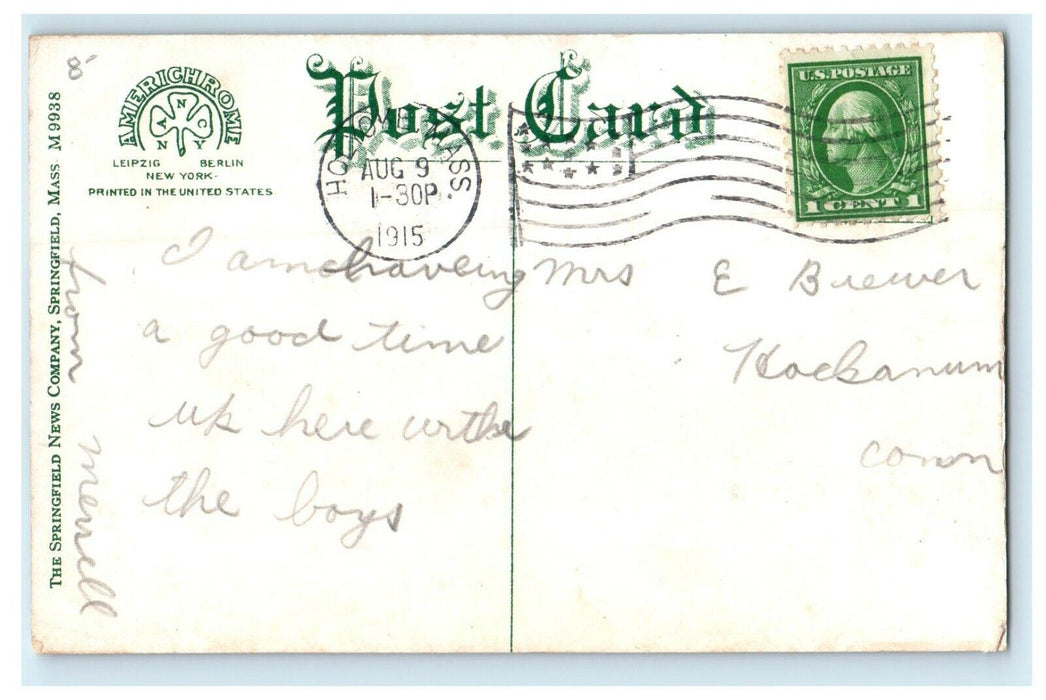 THE SPRINGFIELD NEWS COMPANY, SPRINGFIELD, MASS M 9938
AMERICHROME
ANNCO
NY
LEIPZIG BERLIN
NEW YORK
PRINTED IN THE UNITED STATES
Post Card
HOLYOKE MASS.
AUG 9
1-30P
1915
U.S. POSTAGE
1 CENT 1
I am haveing
a good time
up here withe
the boys
from merrell
Mrs E Brewer
Hockanum
conn